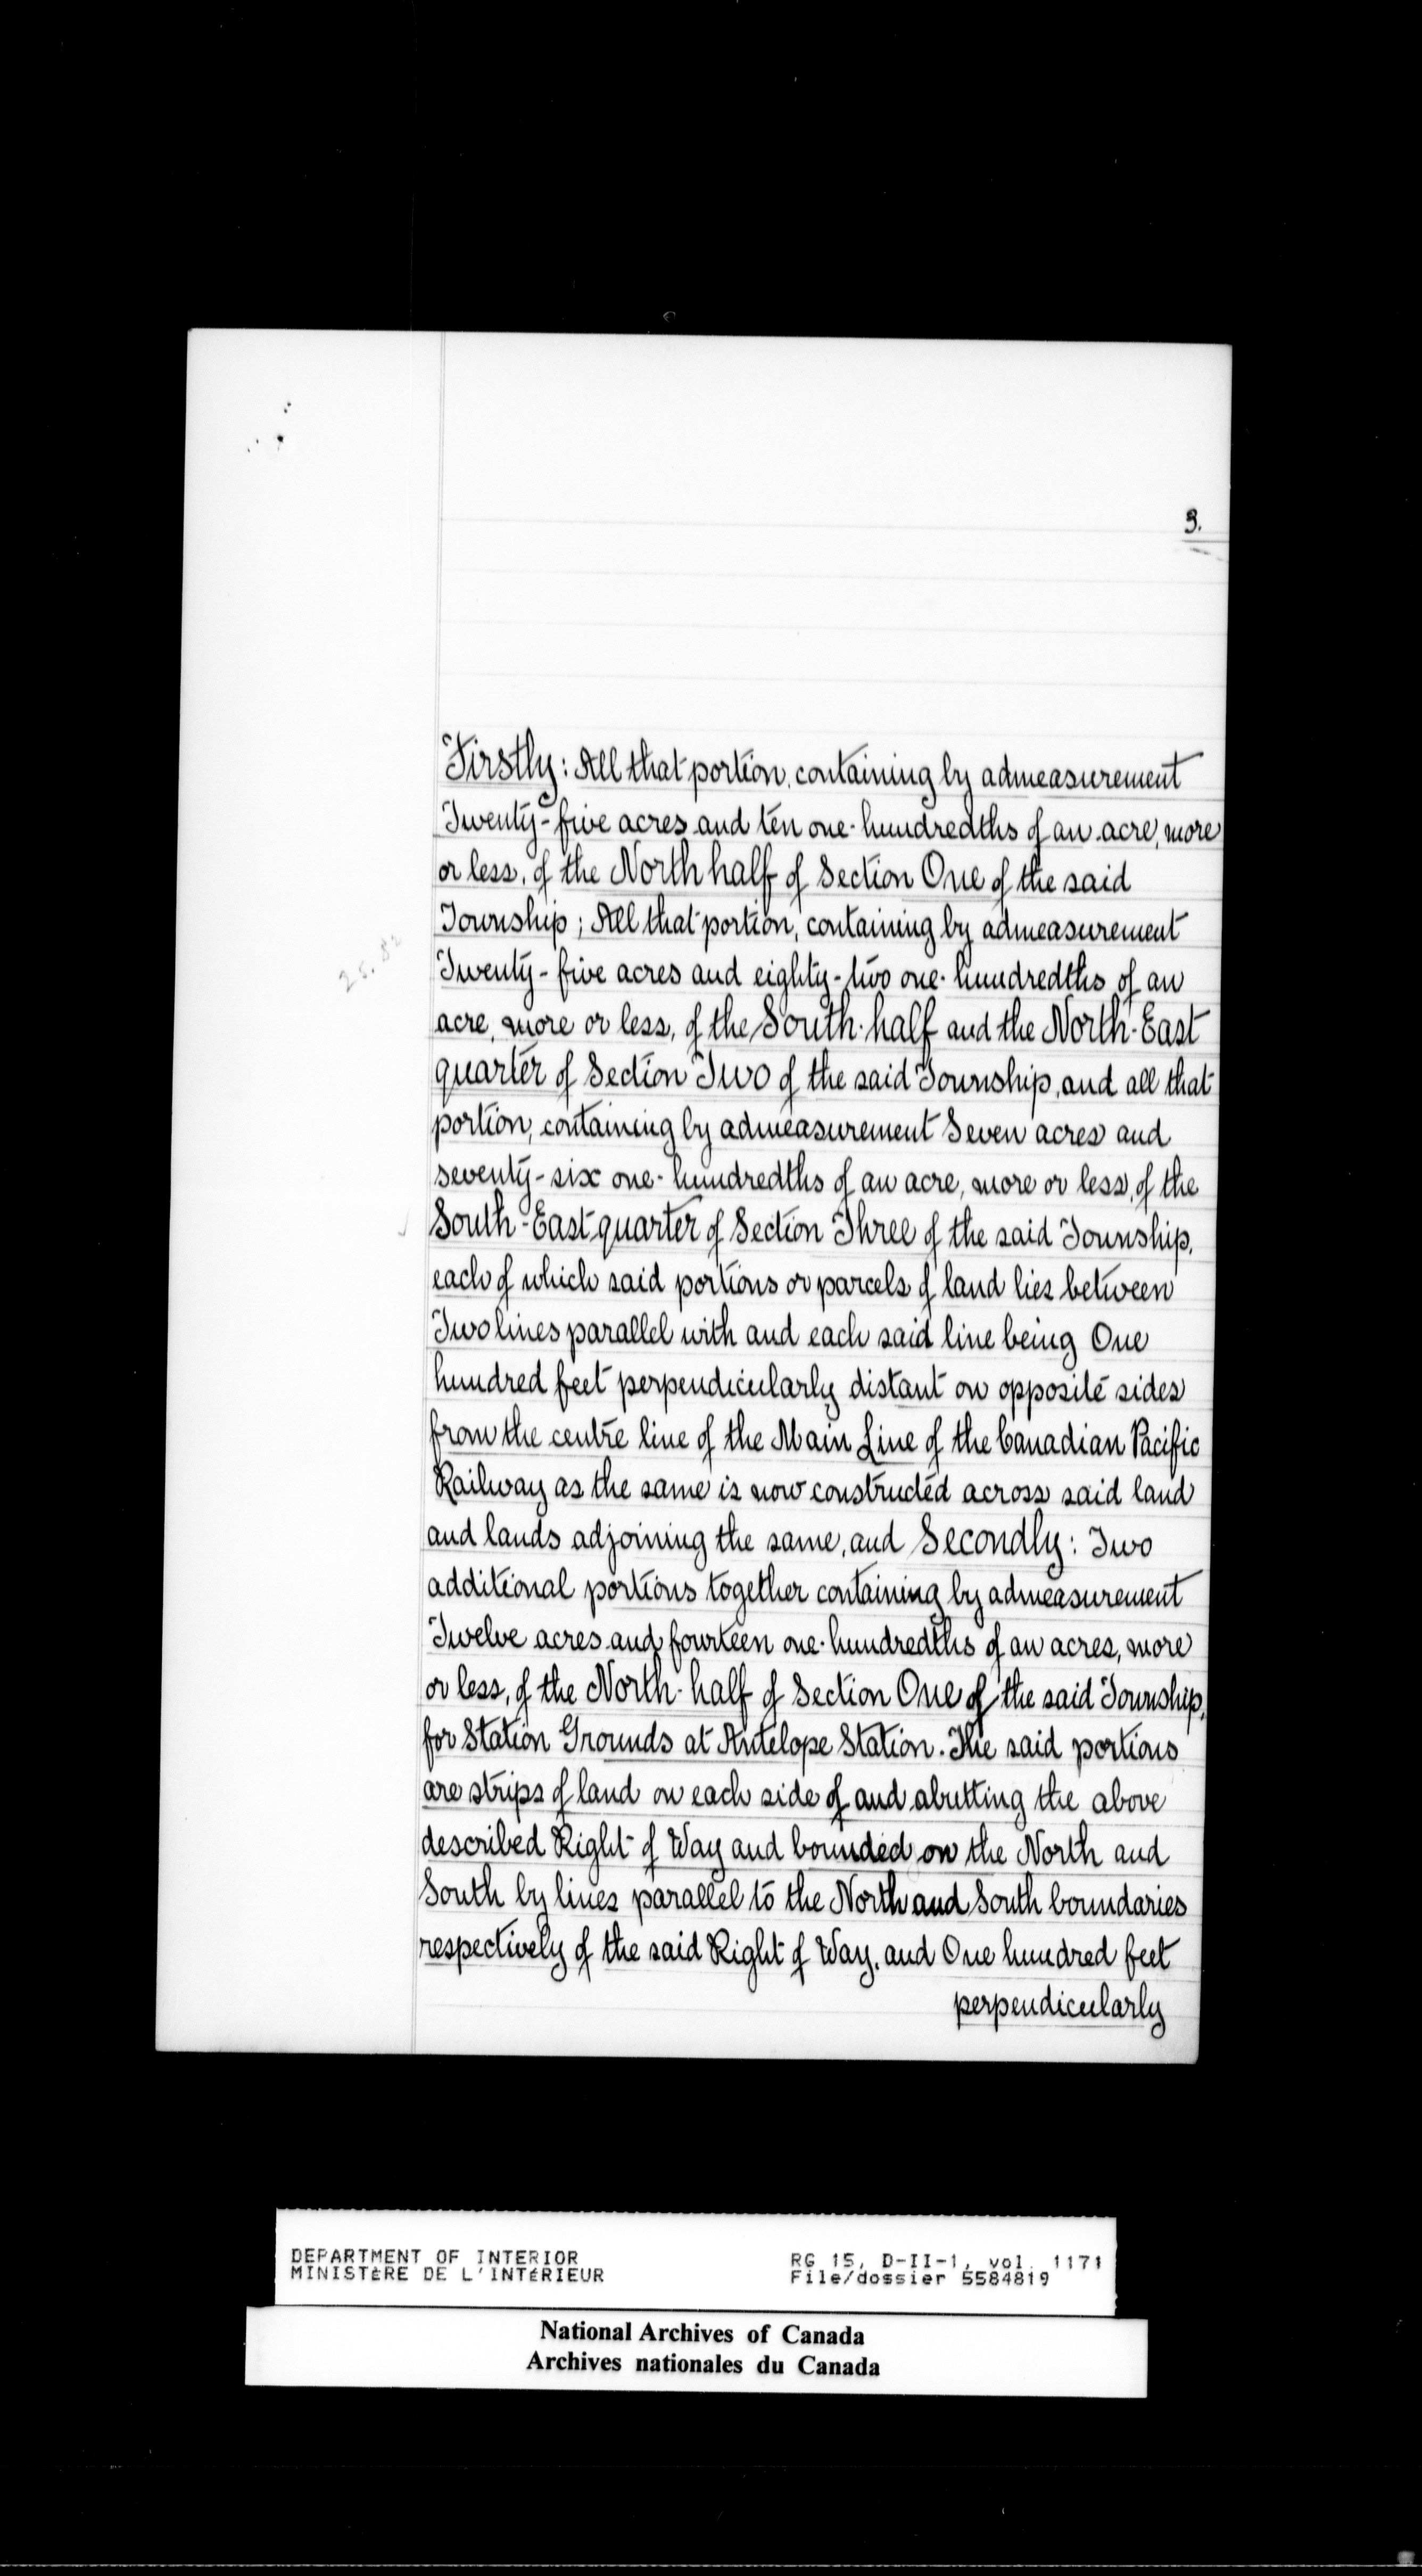 3.
Firstly: All that portion, containing by admeasurement
Twenty-five acres and ten one-hundredths of an acre, more
or less, of the North half of Section One of the said
Township; All that portion, containing by admeasurement
25.82
Twenty-five acres and eighty-two one-hundredths of an
acre, more or less, of the South-half and the North-East
quarter of Section Two of the said Township, and all that
portion, containing by admeasurement Seven acres and
seventy-six one-hundredths of an acre, more or less, of the
South-East quarter of Section Three of the said Township,
each of which said portions or parcels of land lies between
Two lines parallel with and each said line being One
hundred feet perpendicularly distant on opposite sides
from the centre line of the Main Line of the Canadian Pacific
Railway as the same is now constructed across said land
and lands adjoining the same, and Secondly: Two
additional portions together containing by admeasurement
Twelve acres and fourteen one-hundredths of an acres, more
or less, of the North-half of Section One of the said Township,
for Station Grounds at Antelope Station. The said portions
are strips of land on each side of and abutting the above
described Right of Way and bounded on the North and
South by lines parallel to the North and South boundaries
respectively of the said Right of Way, and One hundred feet
perpendicularly
DEPARTMENT OF INTERIOR
MINISTÈRE DE L'INTÉRIEUR
RG 15, D-II-1, vol. 1171
File/dossier 5584819
National Archives of Canada
Archives nationales du Canada